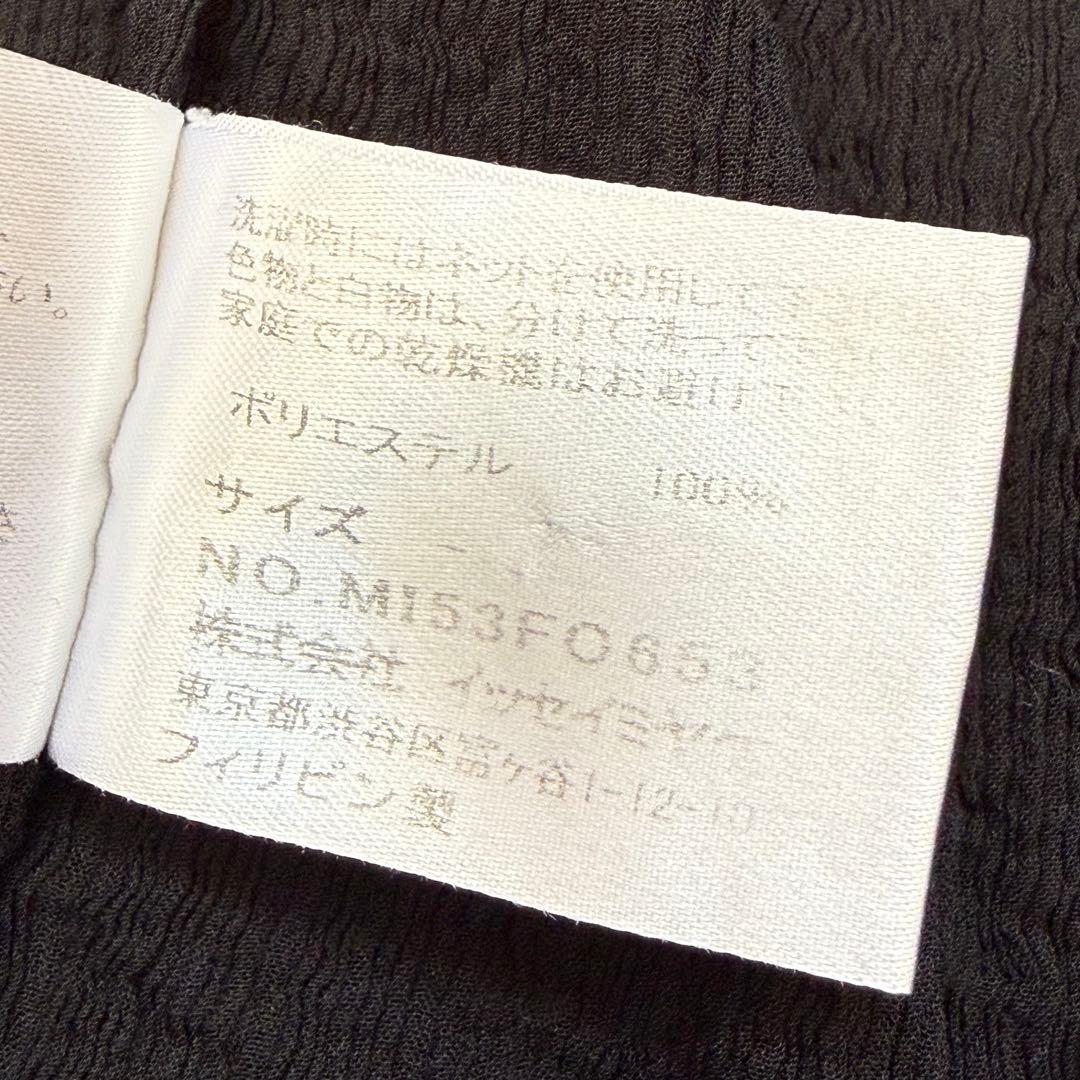 洗濯時にはネットを使用して
色物と白物は、分けて洗って
家庭での乾燥機はお避け
ポリエステル 100%
サイズ -
NO.MI53FO653
株式会社 イッセイミヤケ
東京都渋谷区富ヶ谷1-12-10
フィリピン製